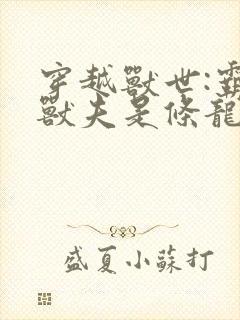 穿越獸世:霸
獸夫是條龍
盛夏小蘇打